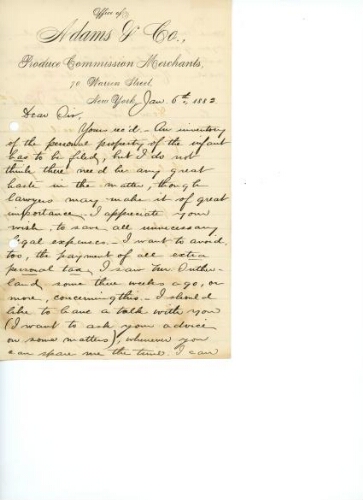 Office of
Adams & Co.,
Produce Commission Merchants,
70 Warren Street,
New York, Jan 6th, 1882
Dear Sir,
Yours rec'd - An inventory
of the personal property of the infant
has to be filed, but I do not
think there need be any great
haste in the matter, though
lawyers may make it of great
importance. I appreciate your
wish to save all unnecessary
legal expenses. I want to avoid,
too, the payment of all extra
personal tax. I saw Mr Suther-
land some three weeks ago, or
more, concerning this. - I should
like to have a talk with you
(I want to ask your advice
on some matters), whenever you
can spare me the time. I can